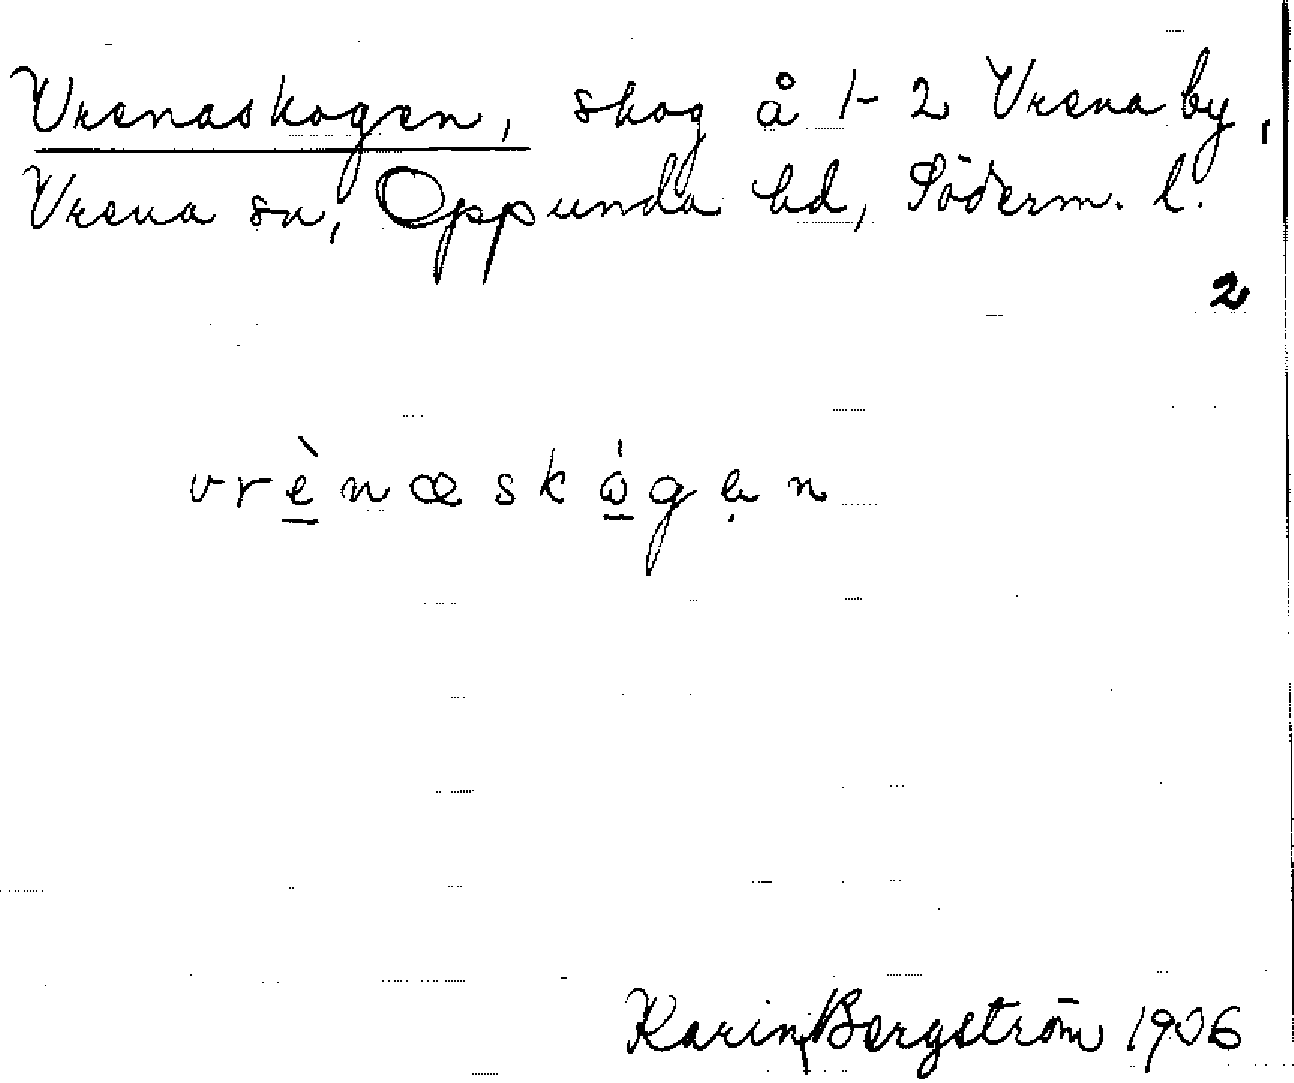 Vrenaskogen, skog å 1-2 Vrena by,
Vrena sn, Oppunda hd, Söderm. l.
2
vrènæskógen
Karin Bergström 1906